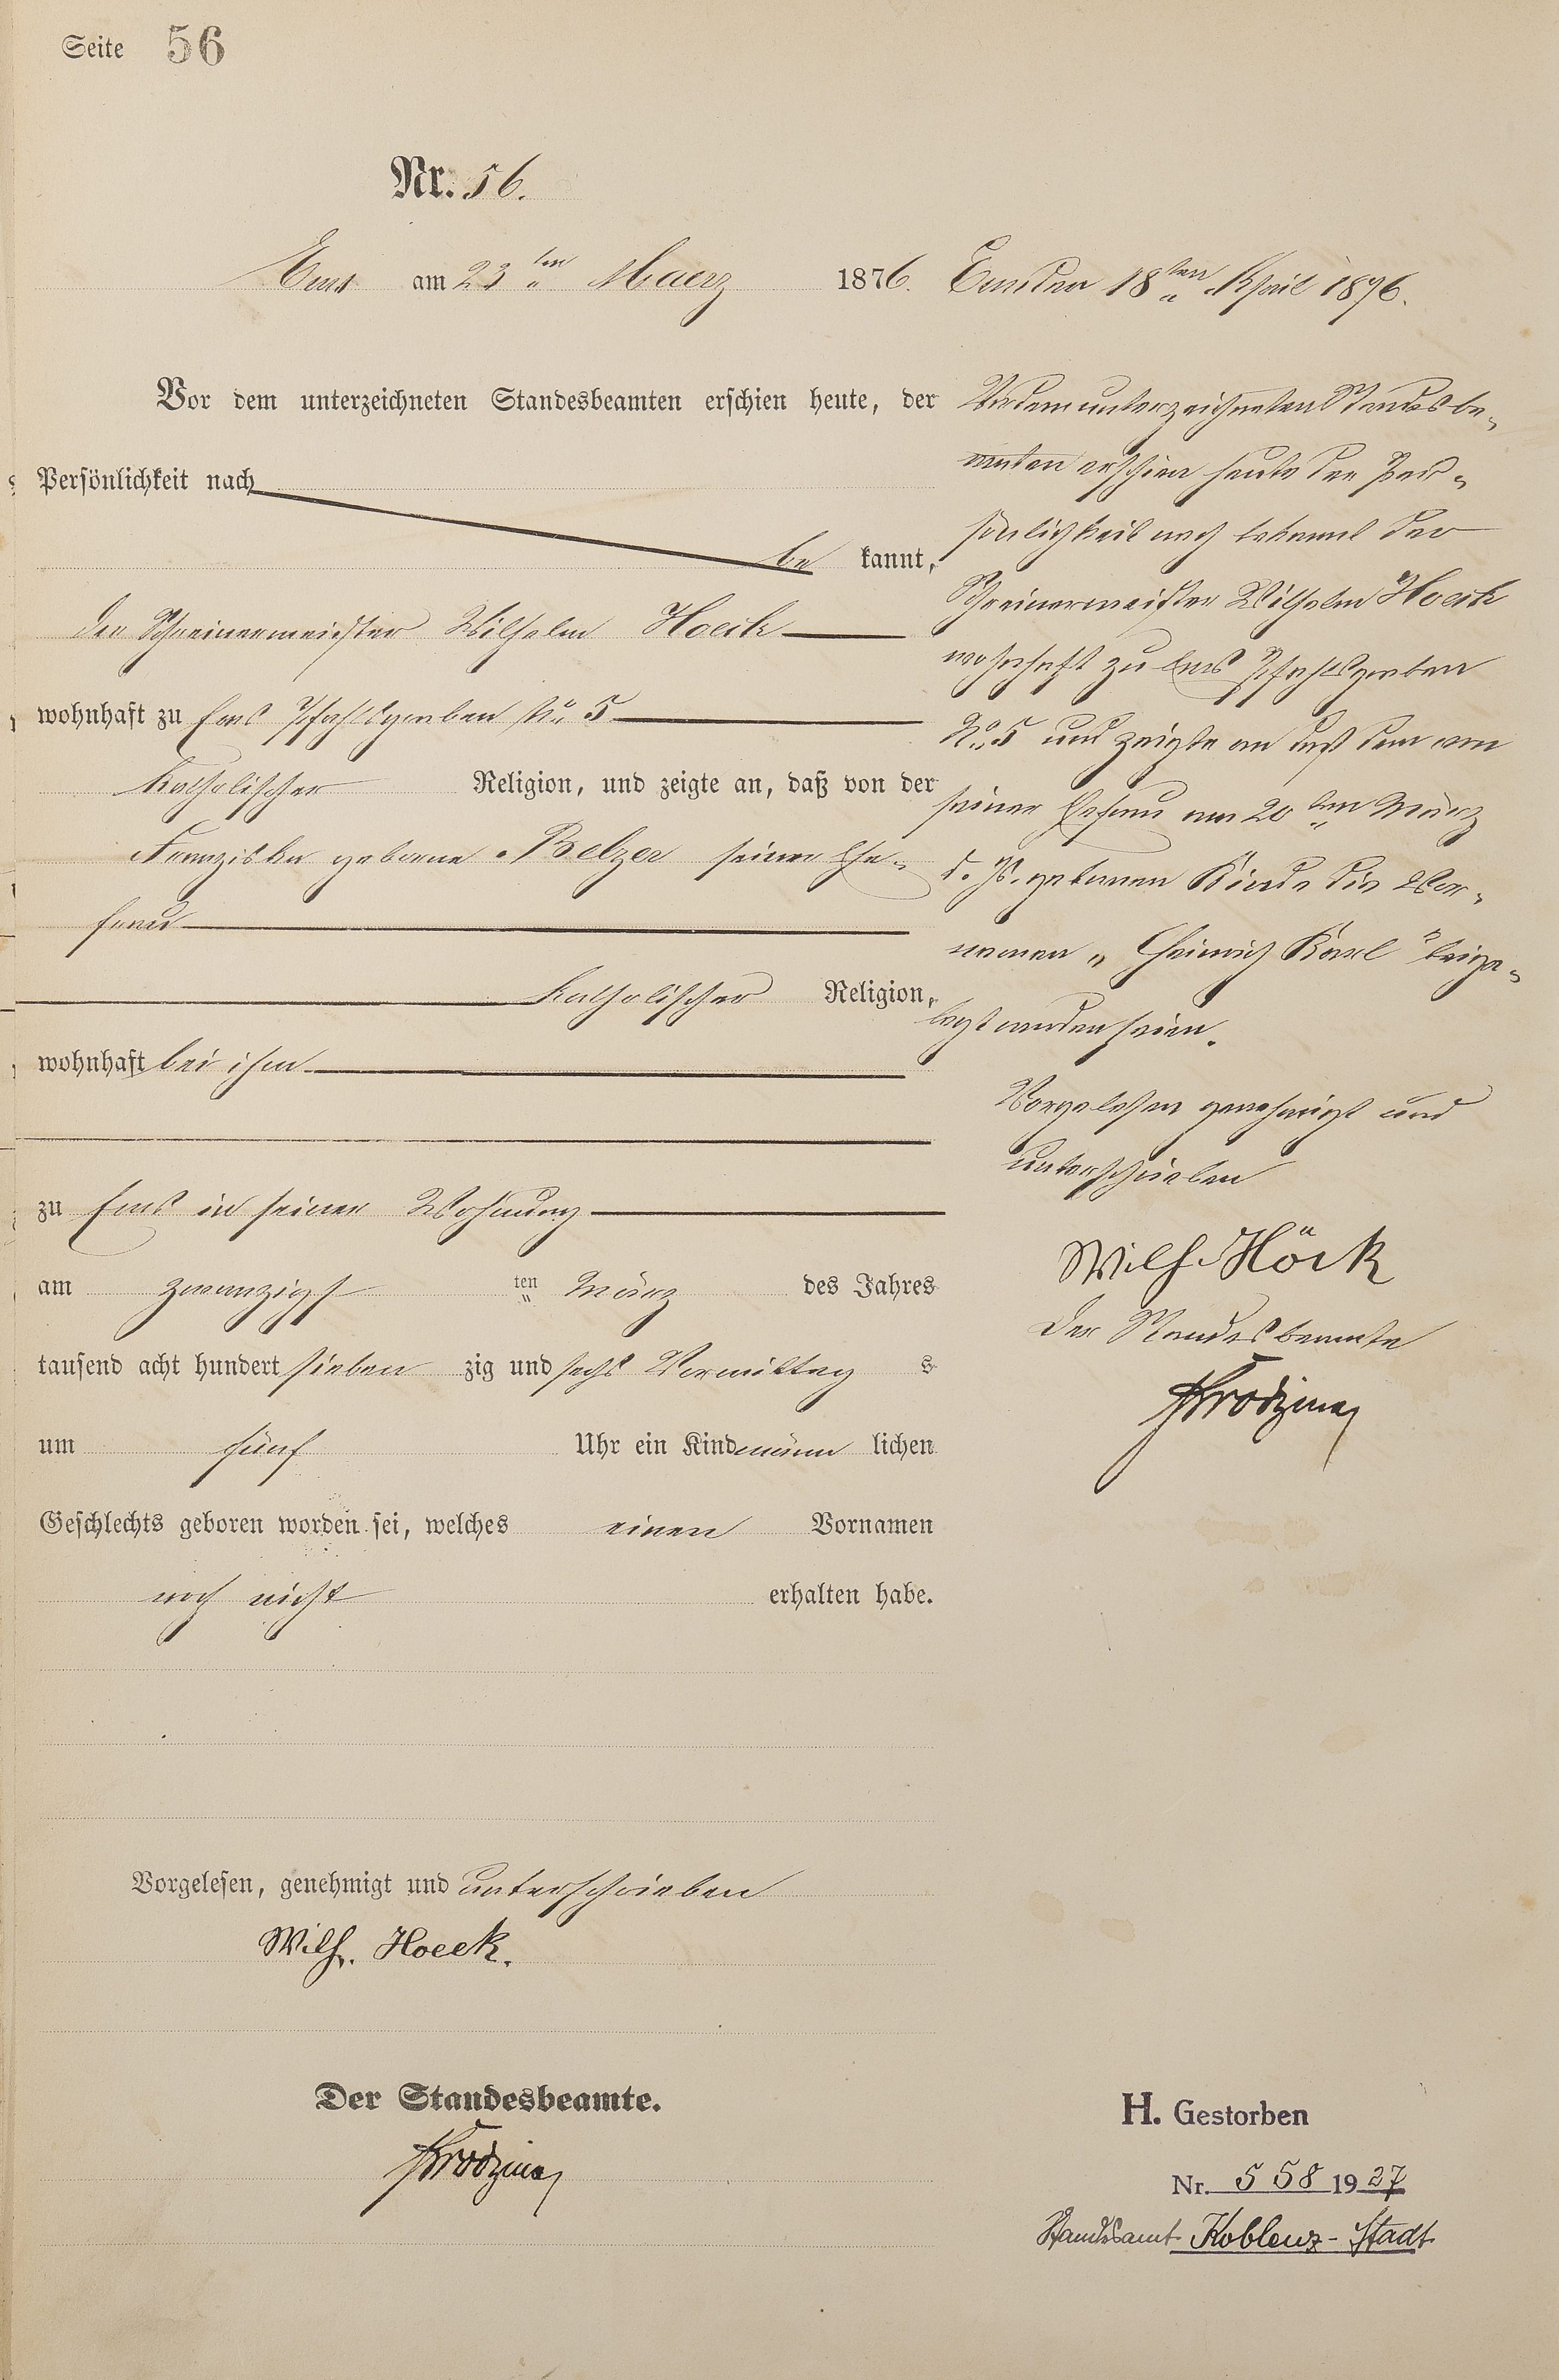 Seite 56
Nr. 56.
Ems am 23ten Maerz 1876.
Vor dem unterzeichneten Standesbeamten erschien heute, der
Persönlichkeit nach
be kannt,
der Schreinermeister Wilhelm Hoeck
wohnhaft zu Ems Pfahlgraben No. 5
katholischer Religion, und zeigte an, daß von der
Franziska geborne Belzer seiner Ehe-
frau
katholischer Religion,
wohnhaft bei ihm
zu Ems in seiner Wohnung
am zwanzigs ten März des Jahres
tausend acht hundert sieben zig und sechs Vormittag s
um fünf Uhr ein Kind männ lichen
Geschlechts geboren worden sei, welches einen Vornamen
noch nicht erhalten habe.
Vorgelesen, genehmigt und unterschrieben
Wilh. Hoeck.
Der Standesbeamte.
Ems den 18ten April 1876.
Vor dem unterzeichneten Standesbe-
amten erschien heute der Per-
sönlichkeit nach bekannt der
Schreinermeister Wilhelm Hoeck
wohnhaft zu Ems Pfahlgraben
No. 5 und zeigte an daß dem von
seiner Ehefrau am 20ten März
d. Js. geborenen Kinde die Vor-
namen „Heinrich Karl" beige-
legt worden seien.
Vorgelesen genehmigt und
unterschrieben
Wilh. Höck
Der Standesbeamte
H. Gestorben
Nr. 558 1927
Standesamt Koblenz-Stadt